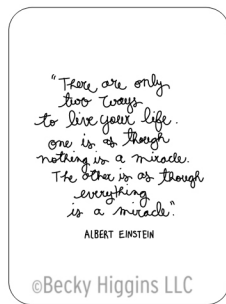 "There are only
two ways
to live your life.
one is as though
nothing is a miracle.
The other is as though
everything
is a miracle."
ALBERT EINSTEIN
©Becky Higgins LLC